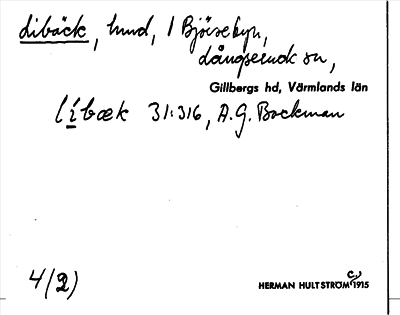 dibäck, hund, / Björsebyn,
långserud sn,
Gillbergs hd, Värmlands län
líbæk 31:316, A.G. Backman
4/(2)
HERMAN HULTSTRÖM c. 1915